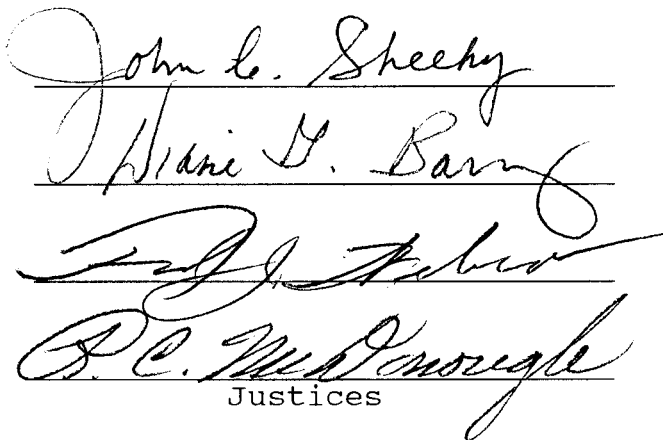 John C. Sheehy
Diane G. Barz
J.
R. C. McDonough
Justices